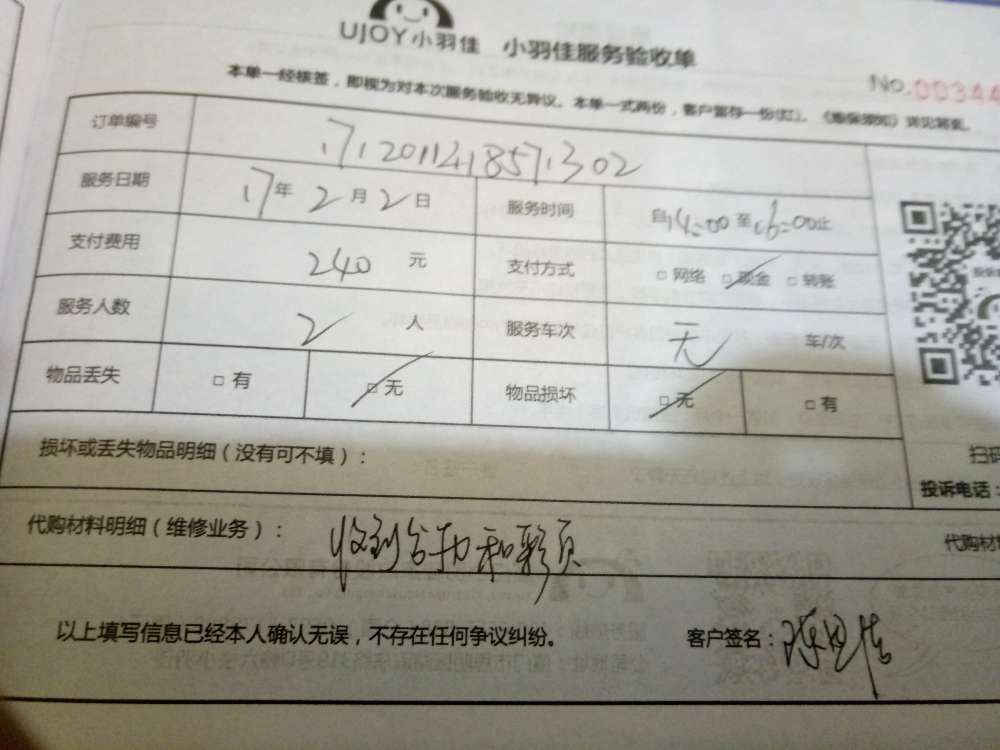 UJOY小羽佳 小羽佳服务验收单
No.00344
本单一经核签，即视为对本次服务验收无异议。本单一式两份，客户留存一份(红)。
订单编号 1712011418571302
服务日期 17年2月2日 服务时间 自14:00至16:00止
支付费用 240 元 支付方式 □网络 □现金 □转账
服务人数 2 人 服务车次 无 车/次
物品丢失 □有 □无 物品损坏 □无 □有
损坏或丢失物品明细（没有可不填）：
扫码
投诉电话：
代购材料明细（维修业务）： 收到 和彩页
代购材料
以上填写信息已经本人确认无误，不存在任何争议纠纷。 客户签名：